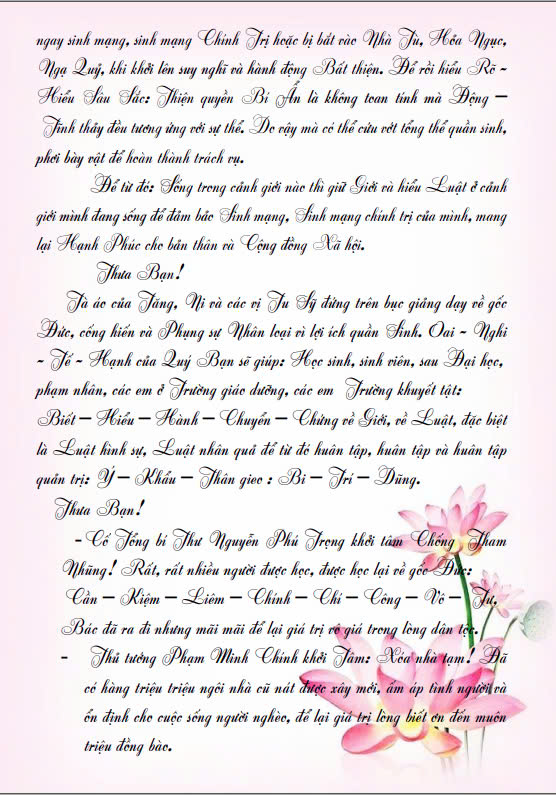 ngay sinh mạng, sinh mạng Chính Trị hoặc bị bắt vào Nhà Tù, Hỏa Ngục,
Ngạ Quỷ, khi khởi lên suy nghĩ và hành động Bất thiện. Để rồi hiểu Rõ -
Hiểu Sâu Sắc: Thiện quyền Bí Ẩn là không toan tính mà Động –
Tĩnh thảy đều tương ứng với sự thể. Do vậy mà có thể cứu vớt tổng thể quần sinh,
phơi bày vật để hoàn thành trách vụ.
Để từ đó: Sống trong cảnh giới nào thì giữ Giới và hiểu Luật ở cảnh
giới mình đang sống để đảm bảo Sinh mạng, Sinh mạng chính trị của mình, mang
lại Hạnh Phúc cho bản thân và Cộng đồng Xã hội.
Thưa Bạn!
Tà áo của Tăng, Ni và các vị Tu Sỹ đứng trên bục giảng dạy về gốc
Đức, cống hiến và Phụng sự Nhân loại vì lợi ích quần Sinh. Oai - Nghi
- Tế - Hạnh của Quý Bạn sẽ giúp: Học sinh, sinh viên, sau Đại học,
phạm nhân, các em ở Trường giáo dưỡng, các em Trường khuyết tật:
Biết – Hiểu – Hành – Chuyển – Chứng về Giới, về Luật, đặc biệt
là Luật hình sự, Luật nhân quả để từ đó huân tập, huân tập và huân tập
quán trị: Ý – Khẩu – Thân gieo : Bi – Trí – Dũng.
Thưa Bạn!
- Cố Tổng bí Thư Nguyễn Phú Trọng khởi tâm Chống Tham
Nhũng! Rất, rất nhiều người được học, được học lại về gốc Đức:
Cần – Kiệm – Liêm – Chính – Chí – Công – Vô – Tư.
Bác đã ra đi nhưng mãi mãi để lại giá trị vô giá trong lòng dân tộc.
- Thủ tướng Phạm Minh Chính khởi Tâm: Xóa nhà tạm! Đã
có hàng triệu triệu ngôi nhà cũ nát được xây mới, ấm áp tình người và
ổn định cho cuộc sống người nghèo, để lại giá trị lòng biết ơn đến muôn
triệu đồng bào.